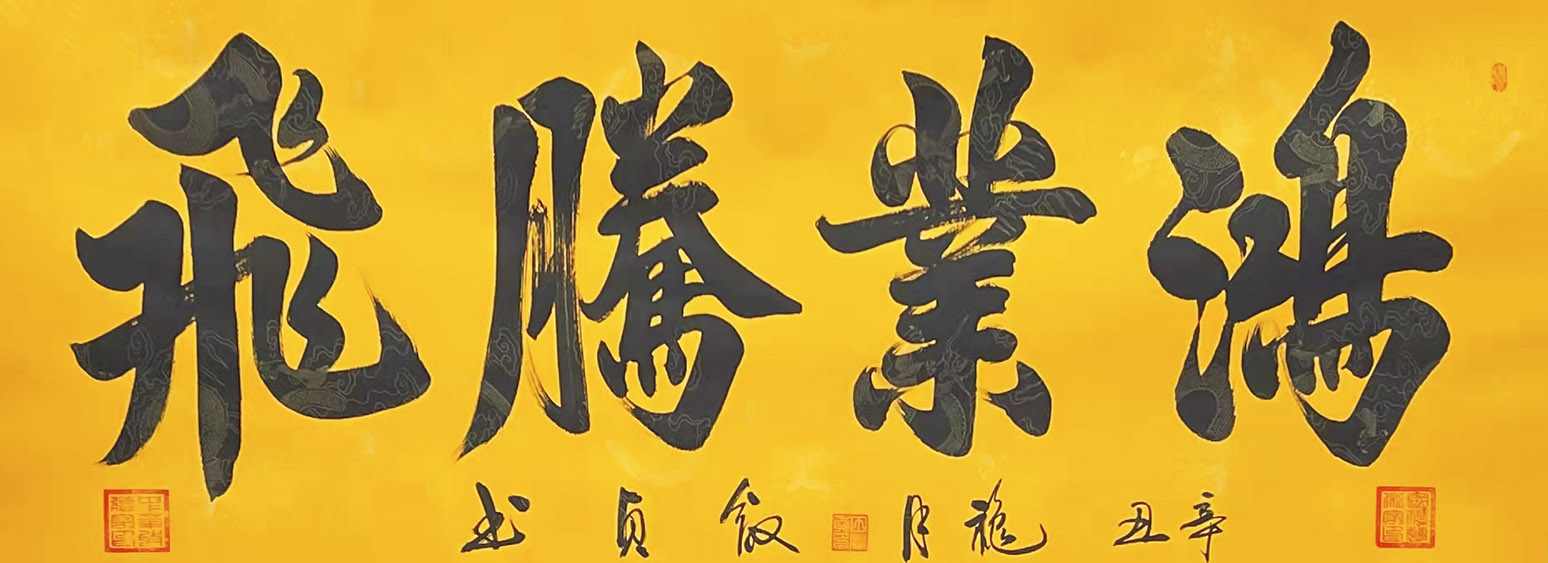 鴻業騰飛
辛丑穐月 敘貞书